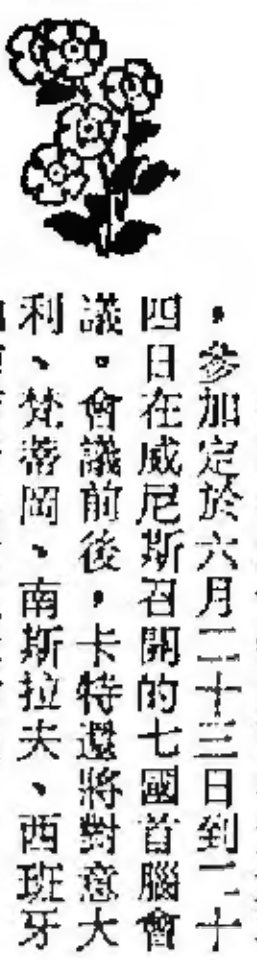 ，參加定於六月二十三日到二十
四日在威尼斯召開的七國首腦會
議。會議前後，卡特還將對意大
利、梵蒂岡、南斯拉夫、西班牙